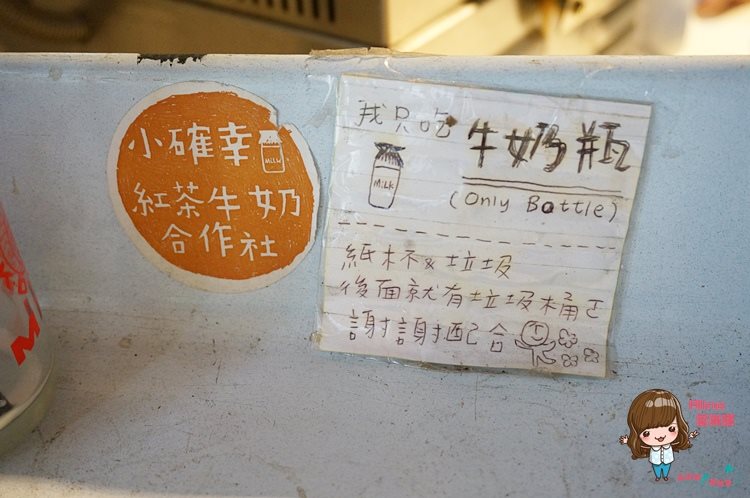 小確幸
MILK
紅茶牛奶
合作社
我只吃 牛奶瓶
MILK
(Only Bottle)
紙杯&垃圾
後面就有垃圾桶
謝謝配合